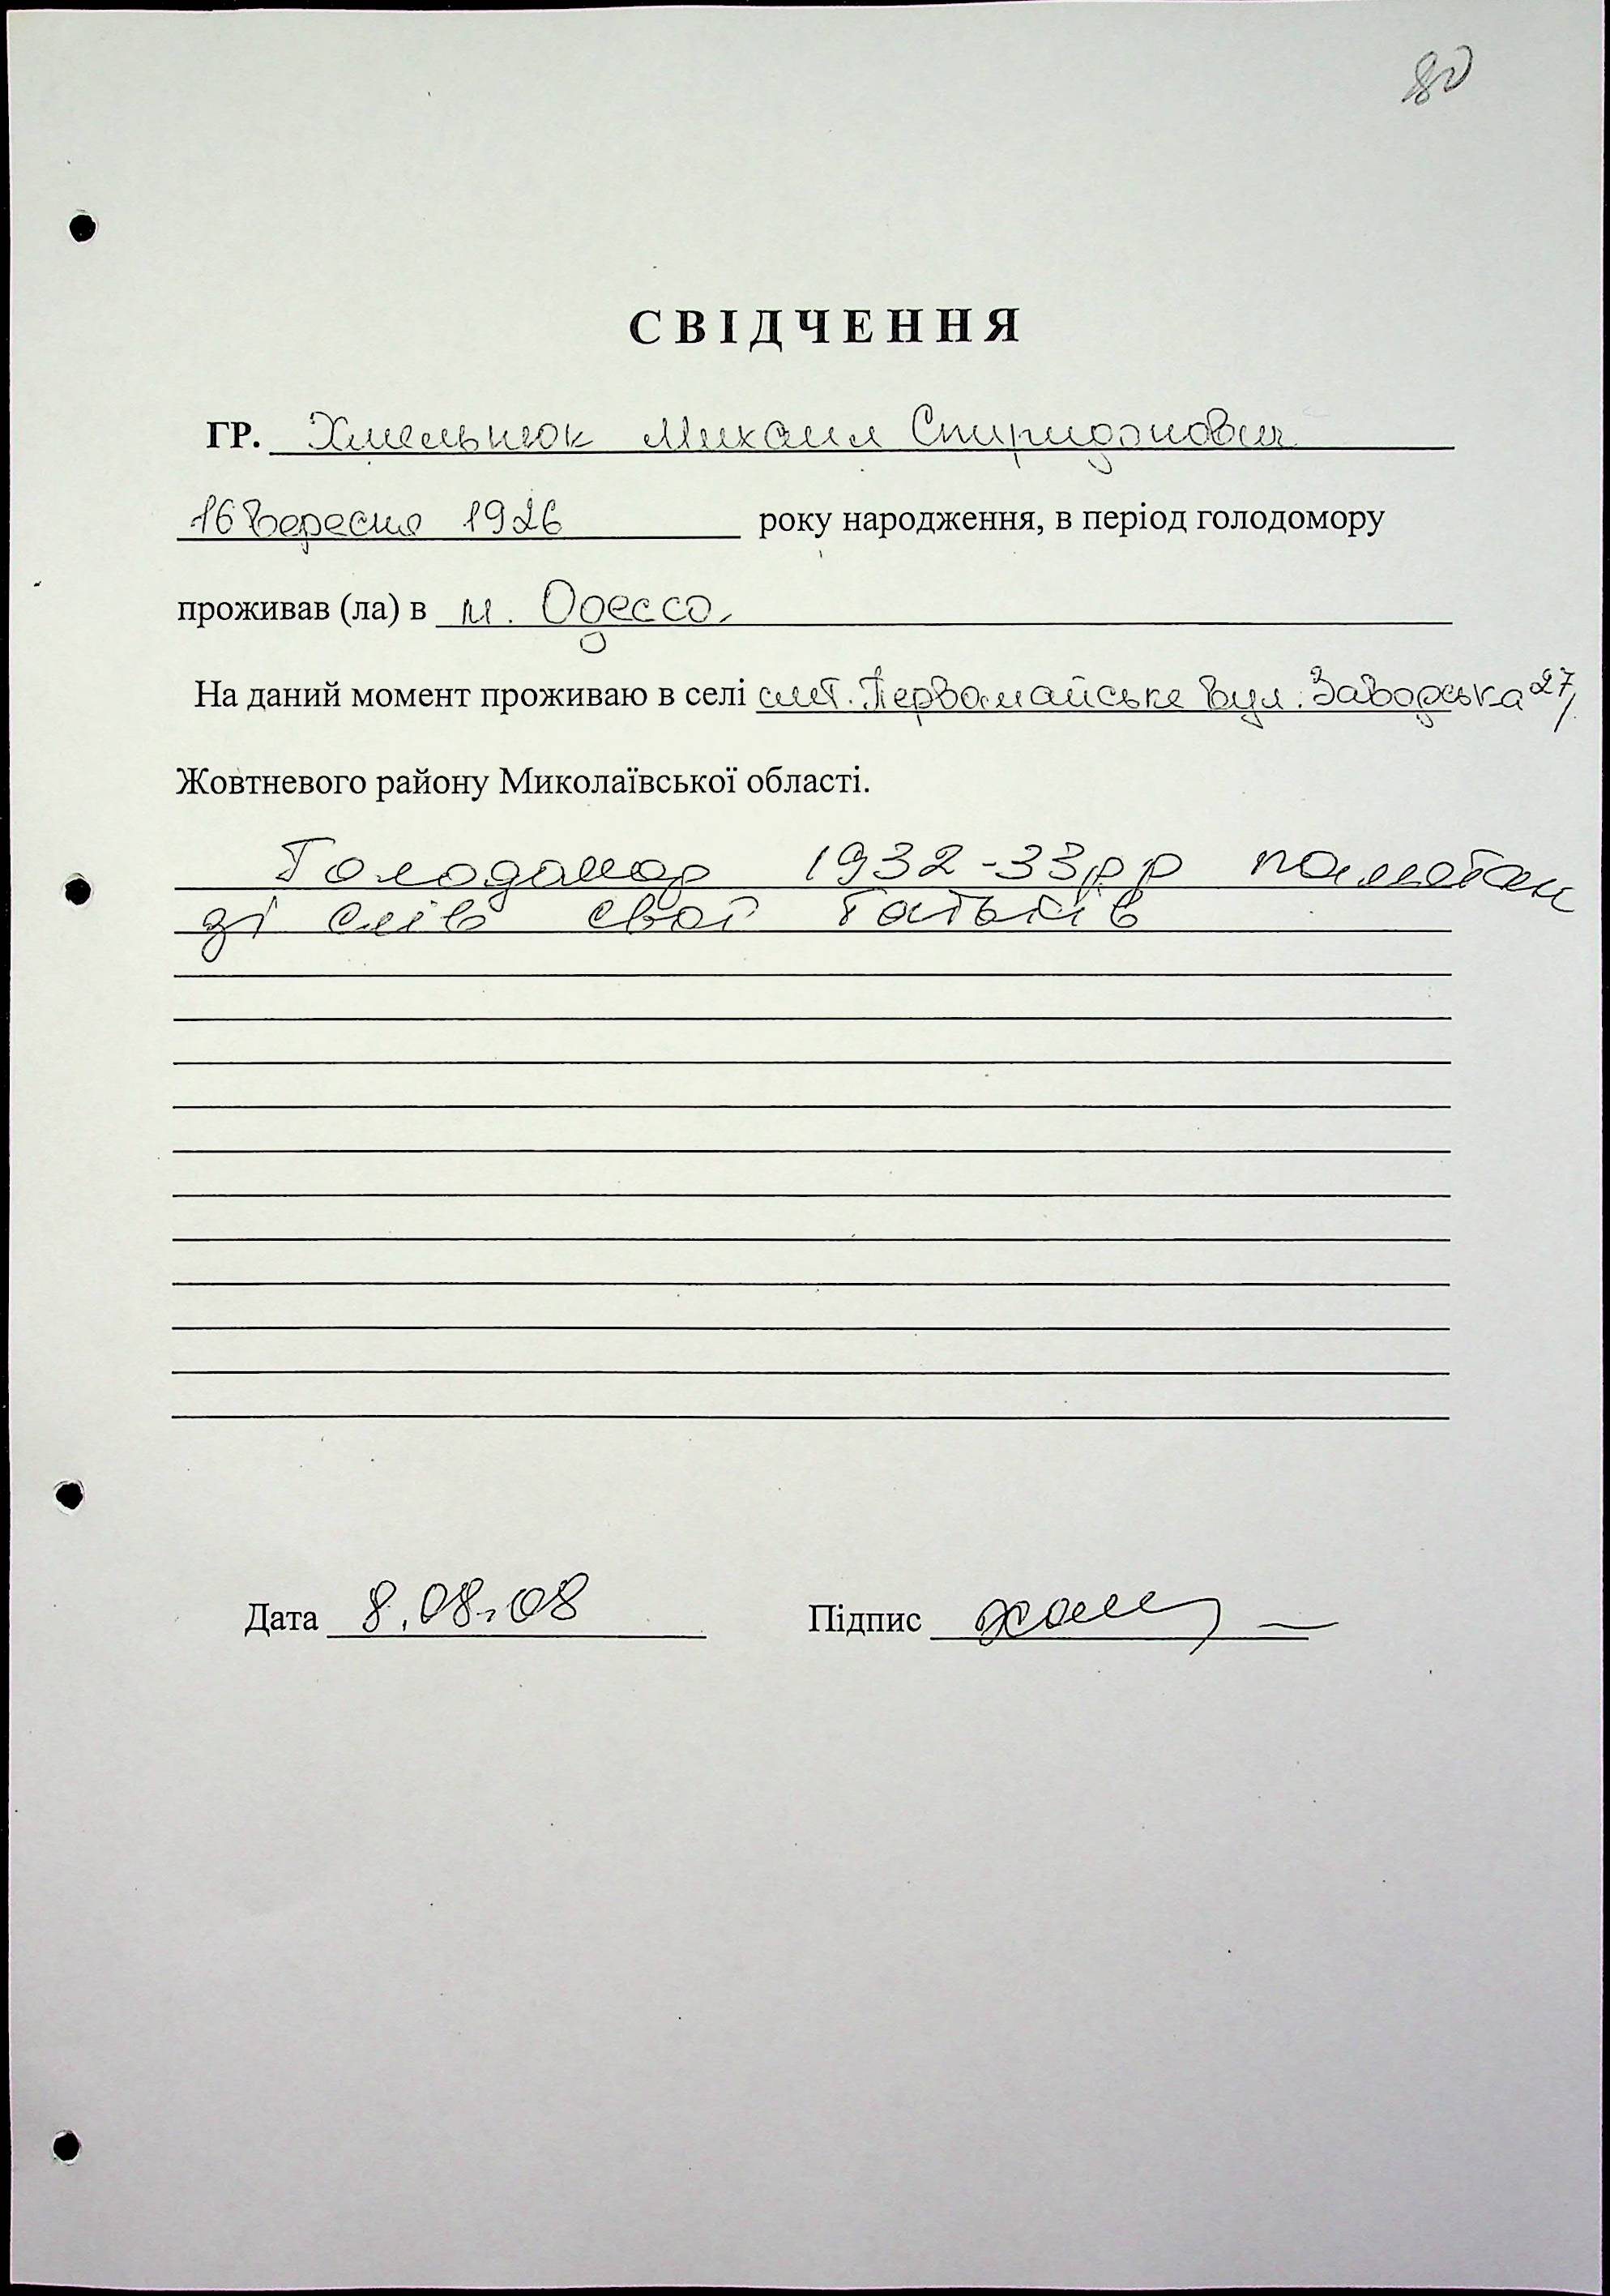 80
СВІДЧЕННЯ
ГР. Хмельнюк Михаил Спиридонович
16 Вересня 1926 року народження, в період голодомору
проживав (ла) в м. Одесса,
На даний момент проживаю в селі смт. Первомайське вул. Заводська 27,
Жовтневого району Миколаївської області.
Голодомор 1932-33рр
зі слів свої батьків
Дата 8.08.08 Підпис